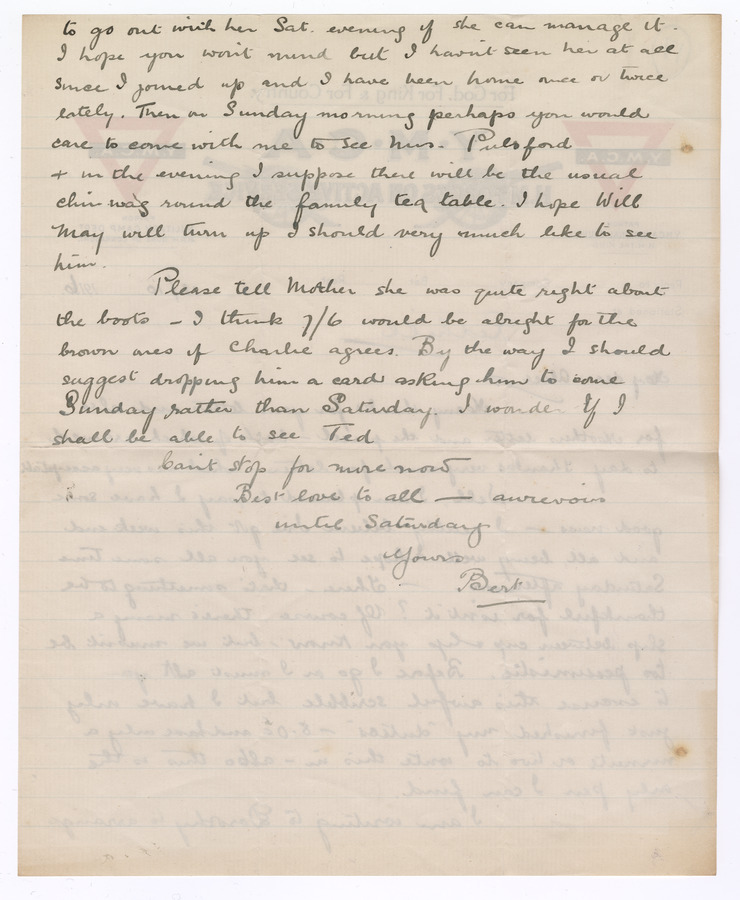 to go out with her Sat. evening if she can manage it.
I hope you won't mind but I havn't seen her at all
since I joined up and I have been home once or twice
lately. Then on Sunday morning perhaps you would
care to come with me to see Mrs. Pulsford
+ in the evening I suppose there will be the usual
chin wag round the family tea table. I hope Will
May will turn up I should very much like to see
him.
Please tell Mother she was quite right about
the boots – I think 7/6 would be alright for the
brown ones if Charlie agrees. By the way I should
suggest dropping him a card asking him to come
Sunday rather than Saturday. I wonder If I
shall be able to see Ted
Can't stop for more now
Best love to all — aurevoir
until Saturday
Yours
Bert